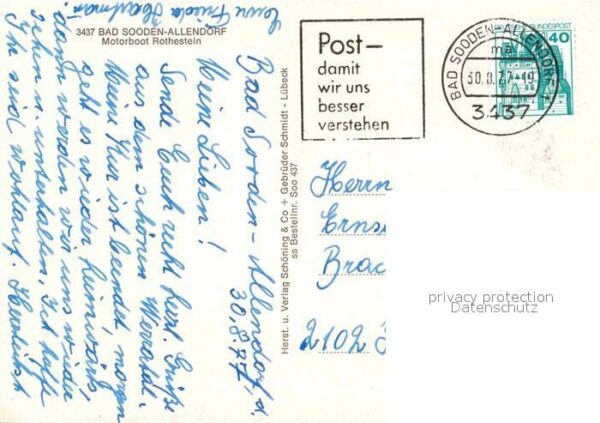 3437 BAD SOODEN-ALLENDORF
Motorboot Rothestein
Bad Sooden-Allendorf, d.
30.8.77
Meine Lieben!
Sende Euch recht herzl. Grüße
aus dem schönen Werratal.
Meine Kur ist beendet morgen
geht es wieder heimwärts,
dann werden wir uns wieder
sehen u. unterhalten, Ich hoffe
Ihr seid wohlauf. Herzlichst
Eure Frieda
Herst. u. Verlag Schöning & Co + Gebrüder Schmidt - Lübeck
ss Bestellnr. Soo 437
Post-
damit
wir uns
besser
verstehen
BAD SOODEN-ALLENDORF 1
ma
30.8.77-19
3437
DEUTSCHE BUNDESPOST
40
Herrn
Erns
Brac
2102
privacy protection
Datenschutz